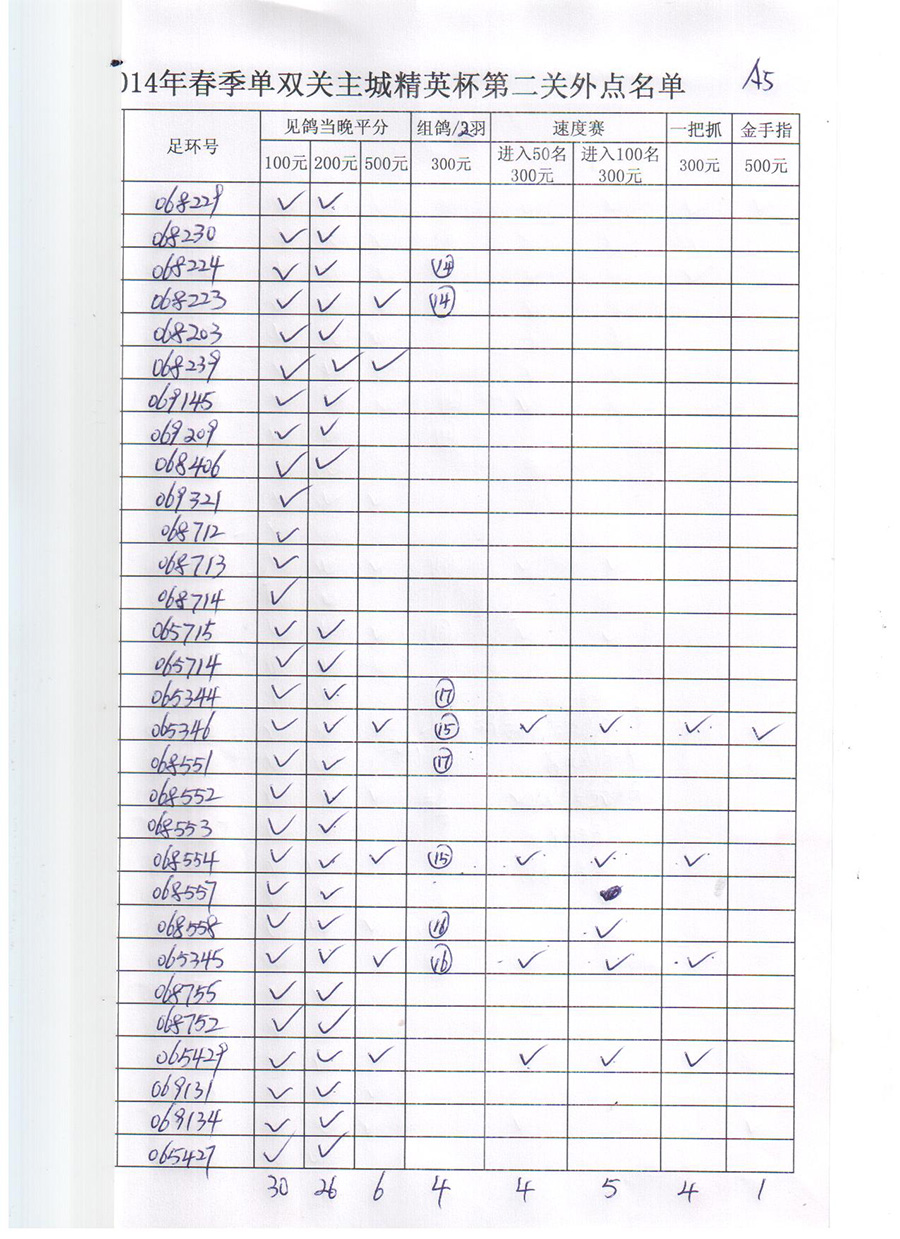 014年春季单双关主城精英杯第二关外点名单 A5
足环号 见鸽当晚平分 组鸽/2羽 速度赛 一把抓 金手指
100元 200元 500元 300元 进入50名 300元 进入100名 300元 300元 500元
068229 ✓ ✓
068230 ✓ ✓
068224 ✓ ✓ ⑭
068223 ✓ ✓ ✓ ⑭
068203 ✓ ✓
068239 ✓ ✓ ✓
069145 ✓ ✓
069209 ✓ ✓
068406 ✓ ✓
069321 ✓
068712 ✓
068713 ✓
068714 ✓
065715 ✓ ✓
065714 ✓ ✓
065344 ✓ ✓ ⑰
065346 ✓ ✓ ✓ ⑮ ✓ ✓ ✓ ✓
068551 ✓ ✓ ⑰
068552 ✓ ✓
068553 ✓ ✓
068554 ✓ ✓ ✓ ⑮ ✓ ✓ ✓
068557 ✓ ✓
068558 ✓ ✓ ⑯ ✓
065345 ✓ ✓ ✓ ⑯ ✓ ✓ ✓
068755 ✓ ✓
068752 ✓ ✓
065429 ✓ ✓ ✓ ✓ ✓ ✓
069131 ✓ ✓
069134 ✓ ✓
065427 ✓ ✓
30 26 6 4 4 5 4 1